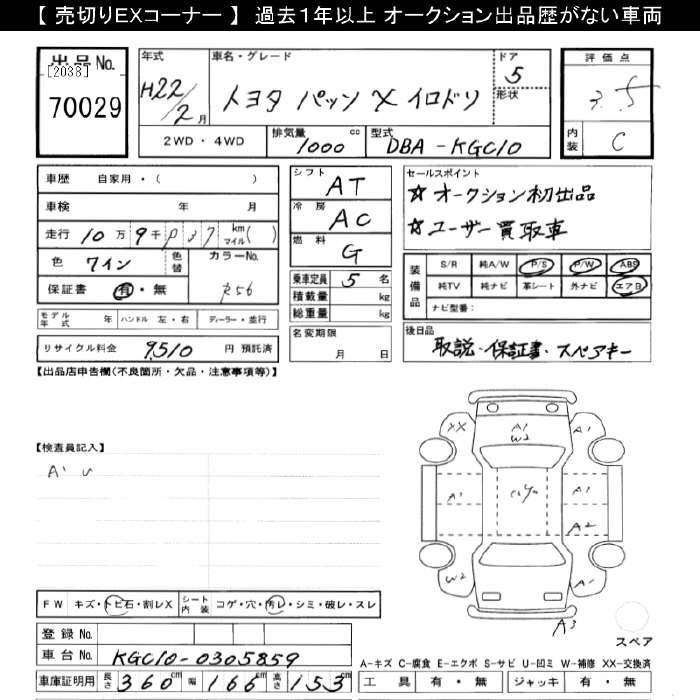 【 売切りEXコーナー 】 過去１年以上 オークション出品歴がない車両
出品No. [2038] 70029
年式 H22/2月
車名・グレード トヨタ パッソ X イロドリ
ドア 5 形状
評価点 3.5
内装 C
2WD・4WD 排気量 1000 cc 型式 DBA-KGC10
車歴 自家用・( )
車検 年 月
走行 10万9千 km マイル( )
色 ワイン 色替 カラーNo.
保証書 有・無
モデル年式 年 ハンドル 左・右 ディーラー・並行
リサイクル料金 9,510 円 預託済
シフト AT
冷房 AC
燃料 G
乗車定員 5 名
積載量 kg
総重量 kg
名変期限 月 日
セールスポイント
☆オークション初出品
☆ユーザー買取車
装備品 S/R 純A/W P/S P/W ABS
純TV 純ナビ 革シート 外ナビ エアB
ナビ型番:
後日品
取説・保証書・スペアキー
【出品店申告欄(不良箇所・欠品・注意事項等)】
【検査員記入】
A1 U
XX A1 W2 A1
A1 A1
A2
W2 A1
A3
スペア
FW キズ・トビ石・割レX シート内装 コゲ・穴・汚レ・シミ・破レ・スレ
登録No.
車台No. KGC10-0305859
車庫証明用 長さ 360cm 幅 166cm 高さ 153cm
A-キズ C-腐食 E-エクボ S-サビ U-凹ミ W-補修 XX-交換済
工具 有・無 ジャッキ 有・無